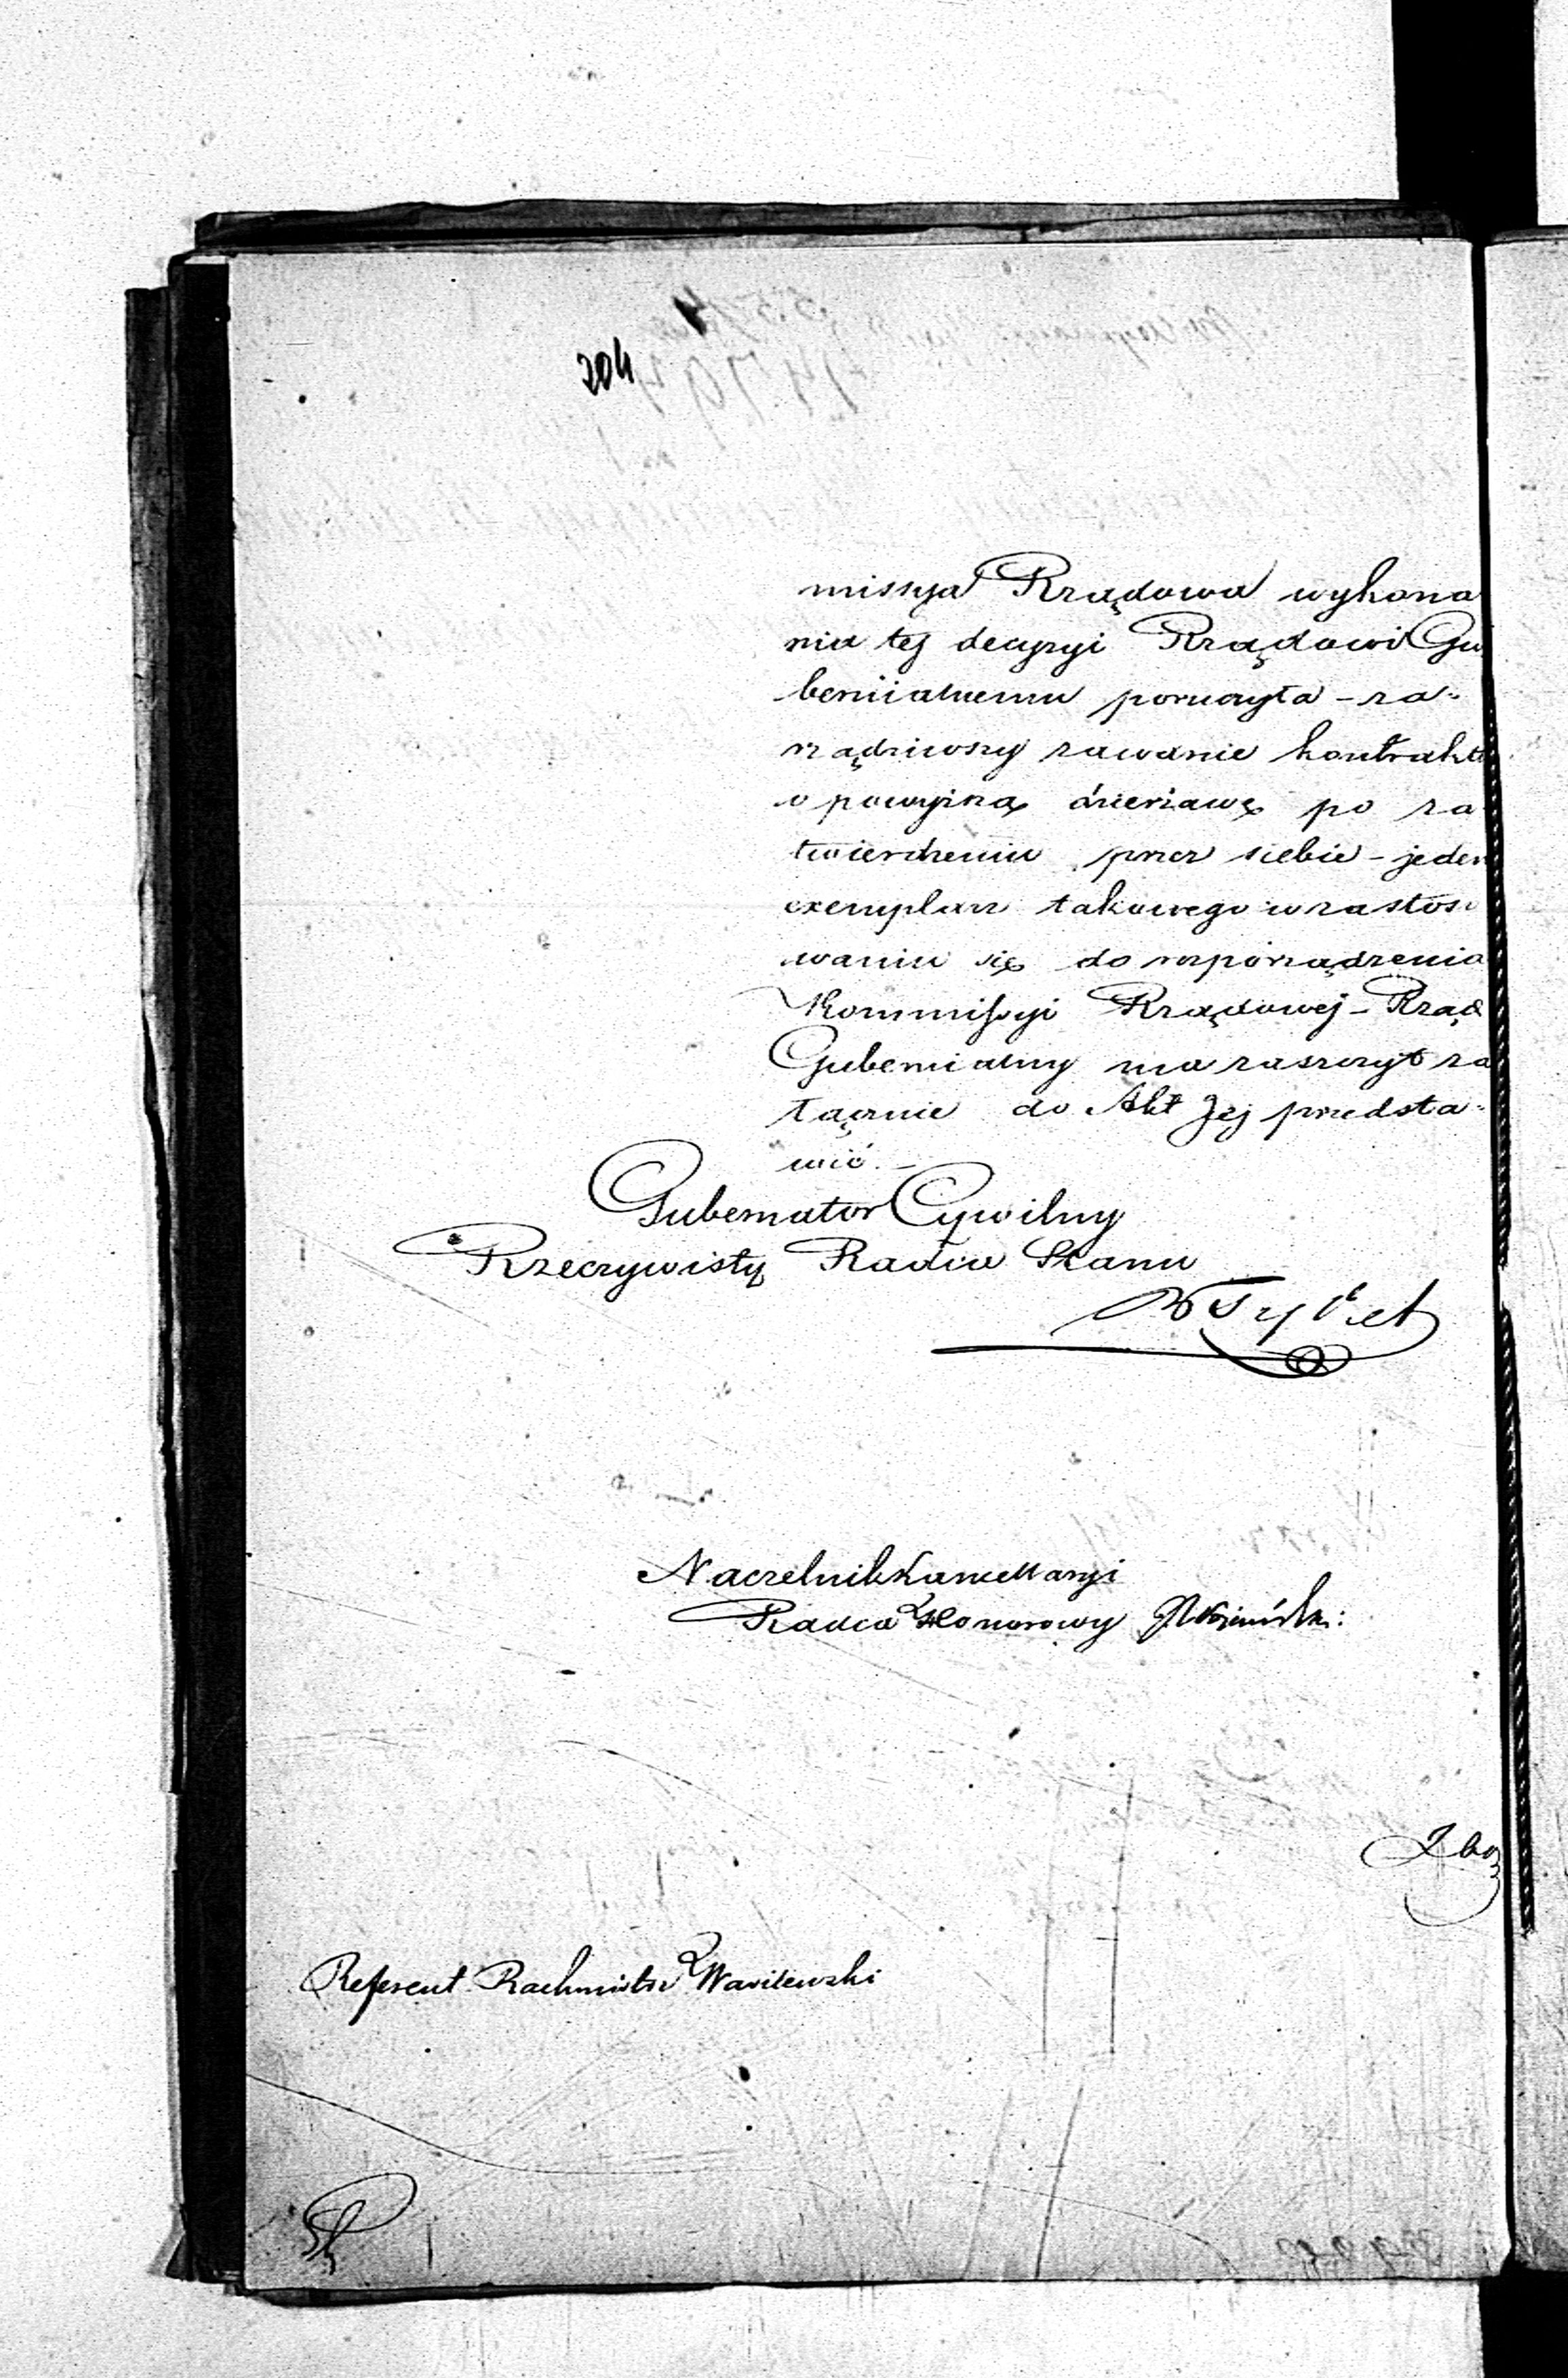 204
missya Rządowa wykona
nia tej decyzyi Rządowi Gu
bernialnemu poruczyła – za-
rządziwszy zawarcie kontraktu
o powyższą dzierżawę po za
twierdzeniu przez siebie – jeden
exemplarz takowego w zastoso
waniu się do rozporządzenia
Kommissyi Rządowej – Rząd
Gubernialny ma zaszczyt za
łącznie do Akt Jej przedsta-
wić. –
Gubernator Cywilny
Rzeczywisty Radca Stanu
Naczelnik Kancellaryi
Radca Honorowy
Referent Rachmistrz Wasilewski